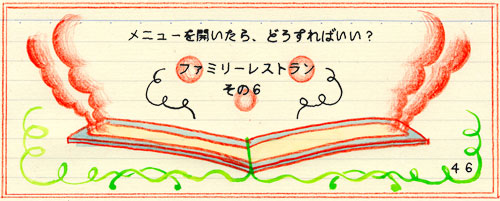 メニューを開いたら、どうすればいい？
ファミリーレストラン
その６
４６